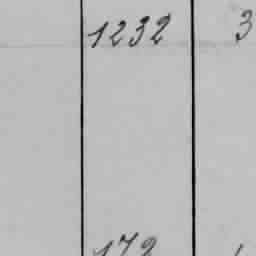 1232 3
172